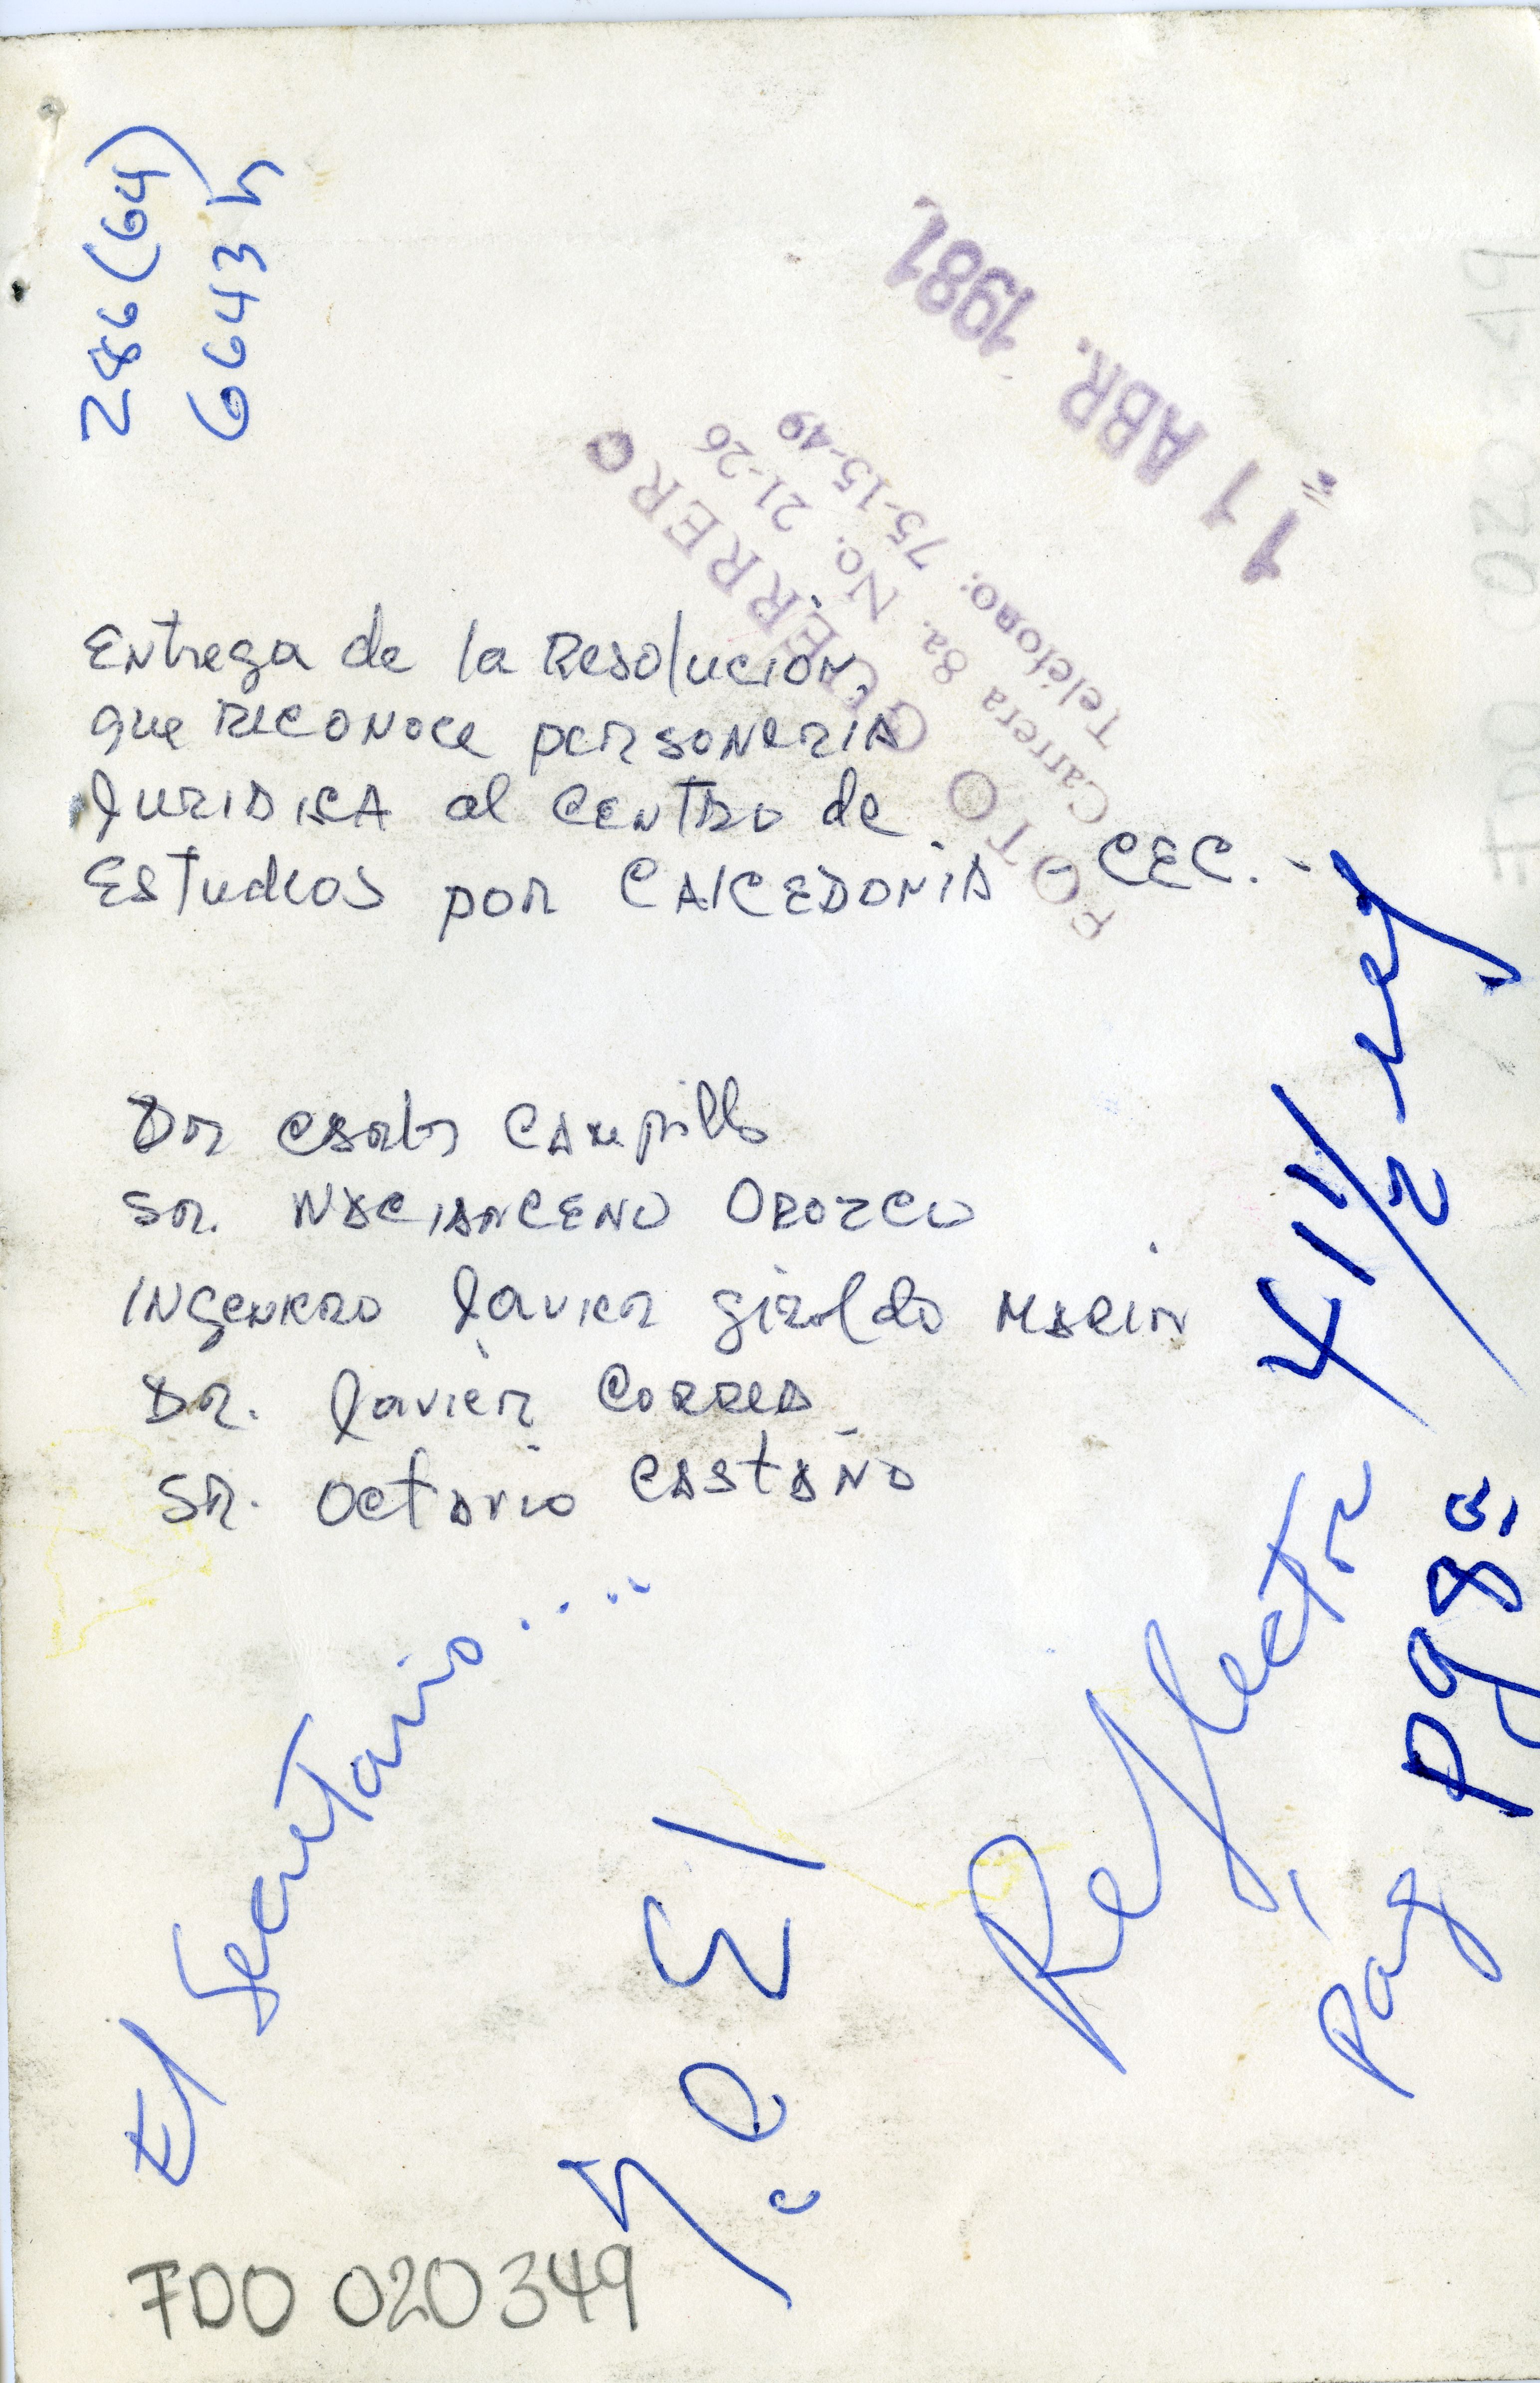 286 (64)
6643 h
11 ABR. 1981
FOTO GUERRERO
Carrera 8a. No. 21-26
Teléfono: 75-15-49
Entrega de la Resolución,
que reconoce personeria
Juridica al Centro de
Estudios por Caicedonia - CEC. -
Dr Campillo
Sr. Nacianceno Orozco
Ingeniero Javier Giraldo Marin
Dr. Javier Correa
Sr. Octavio Castaño
El Secretario....
Reflector
Pág
Pg 8a,
4 1/2
FDO 020349